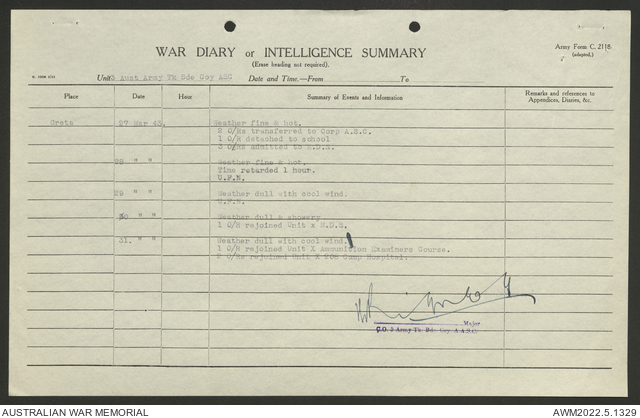 Army Form C. 2118.
(adapted.)
WAR DIARY or INTELLIGENCE SUMMARY
(Erase heading not required).
Unit 3 Aust Army Tk Bde Coy ASC Date and Time.—From To
Place Date Hour Summary of Events and Information Remarks and references to Appendices, Diaries, &c.
Greta 27 Mar 43. Weather fine & hot.
2 O/Rs transferred to Corp A.E.C.
1 O/R detached to school
3 O/Rs admitted to M.D.S.
28 " " Weather fine & hot.
Time retarded 1 hour.
U.F.N.
29 " " Weather dull with cool wind.
U.F.N.
30 " " Weather dull & showery
1 O/R rejoined Unit x M.D.S.
31. " " Weather dull with cool wind.
1 O/R rejoined Unit X Ammunition Examiners Course.
2 O/Rs rejoined Unit X 206 Camp Hospital.
Major
C.O. 3 Army Tk Bde Coy. A.A.S.C.
AUSTRALIAN WAR MEMORIAL AWM2022.5.1329